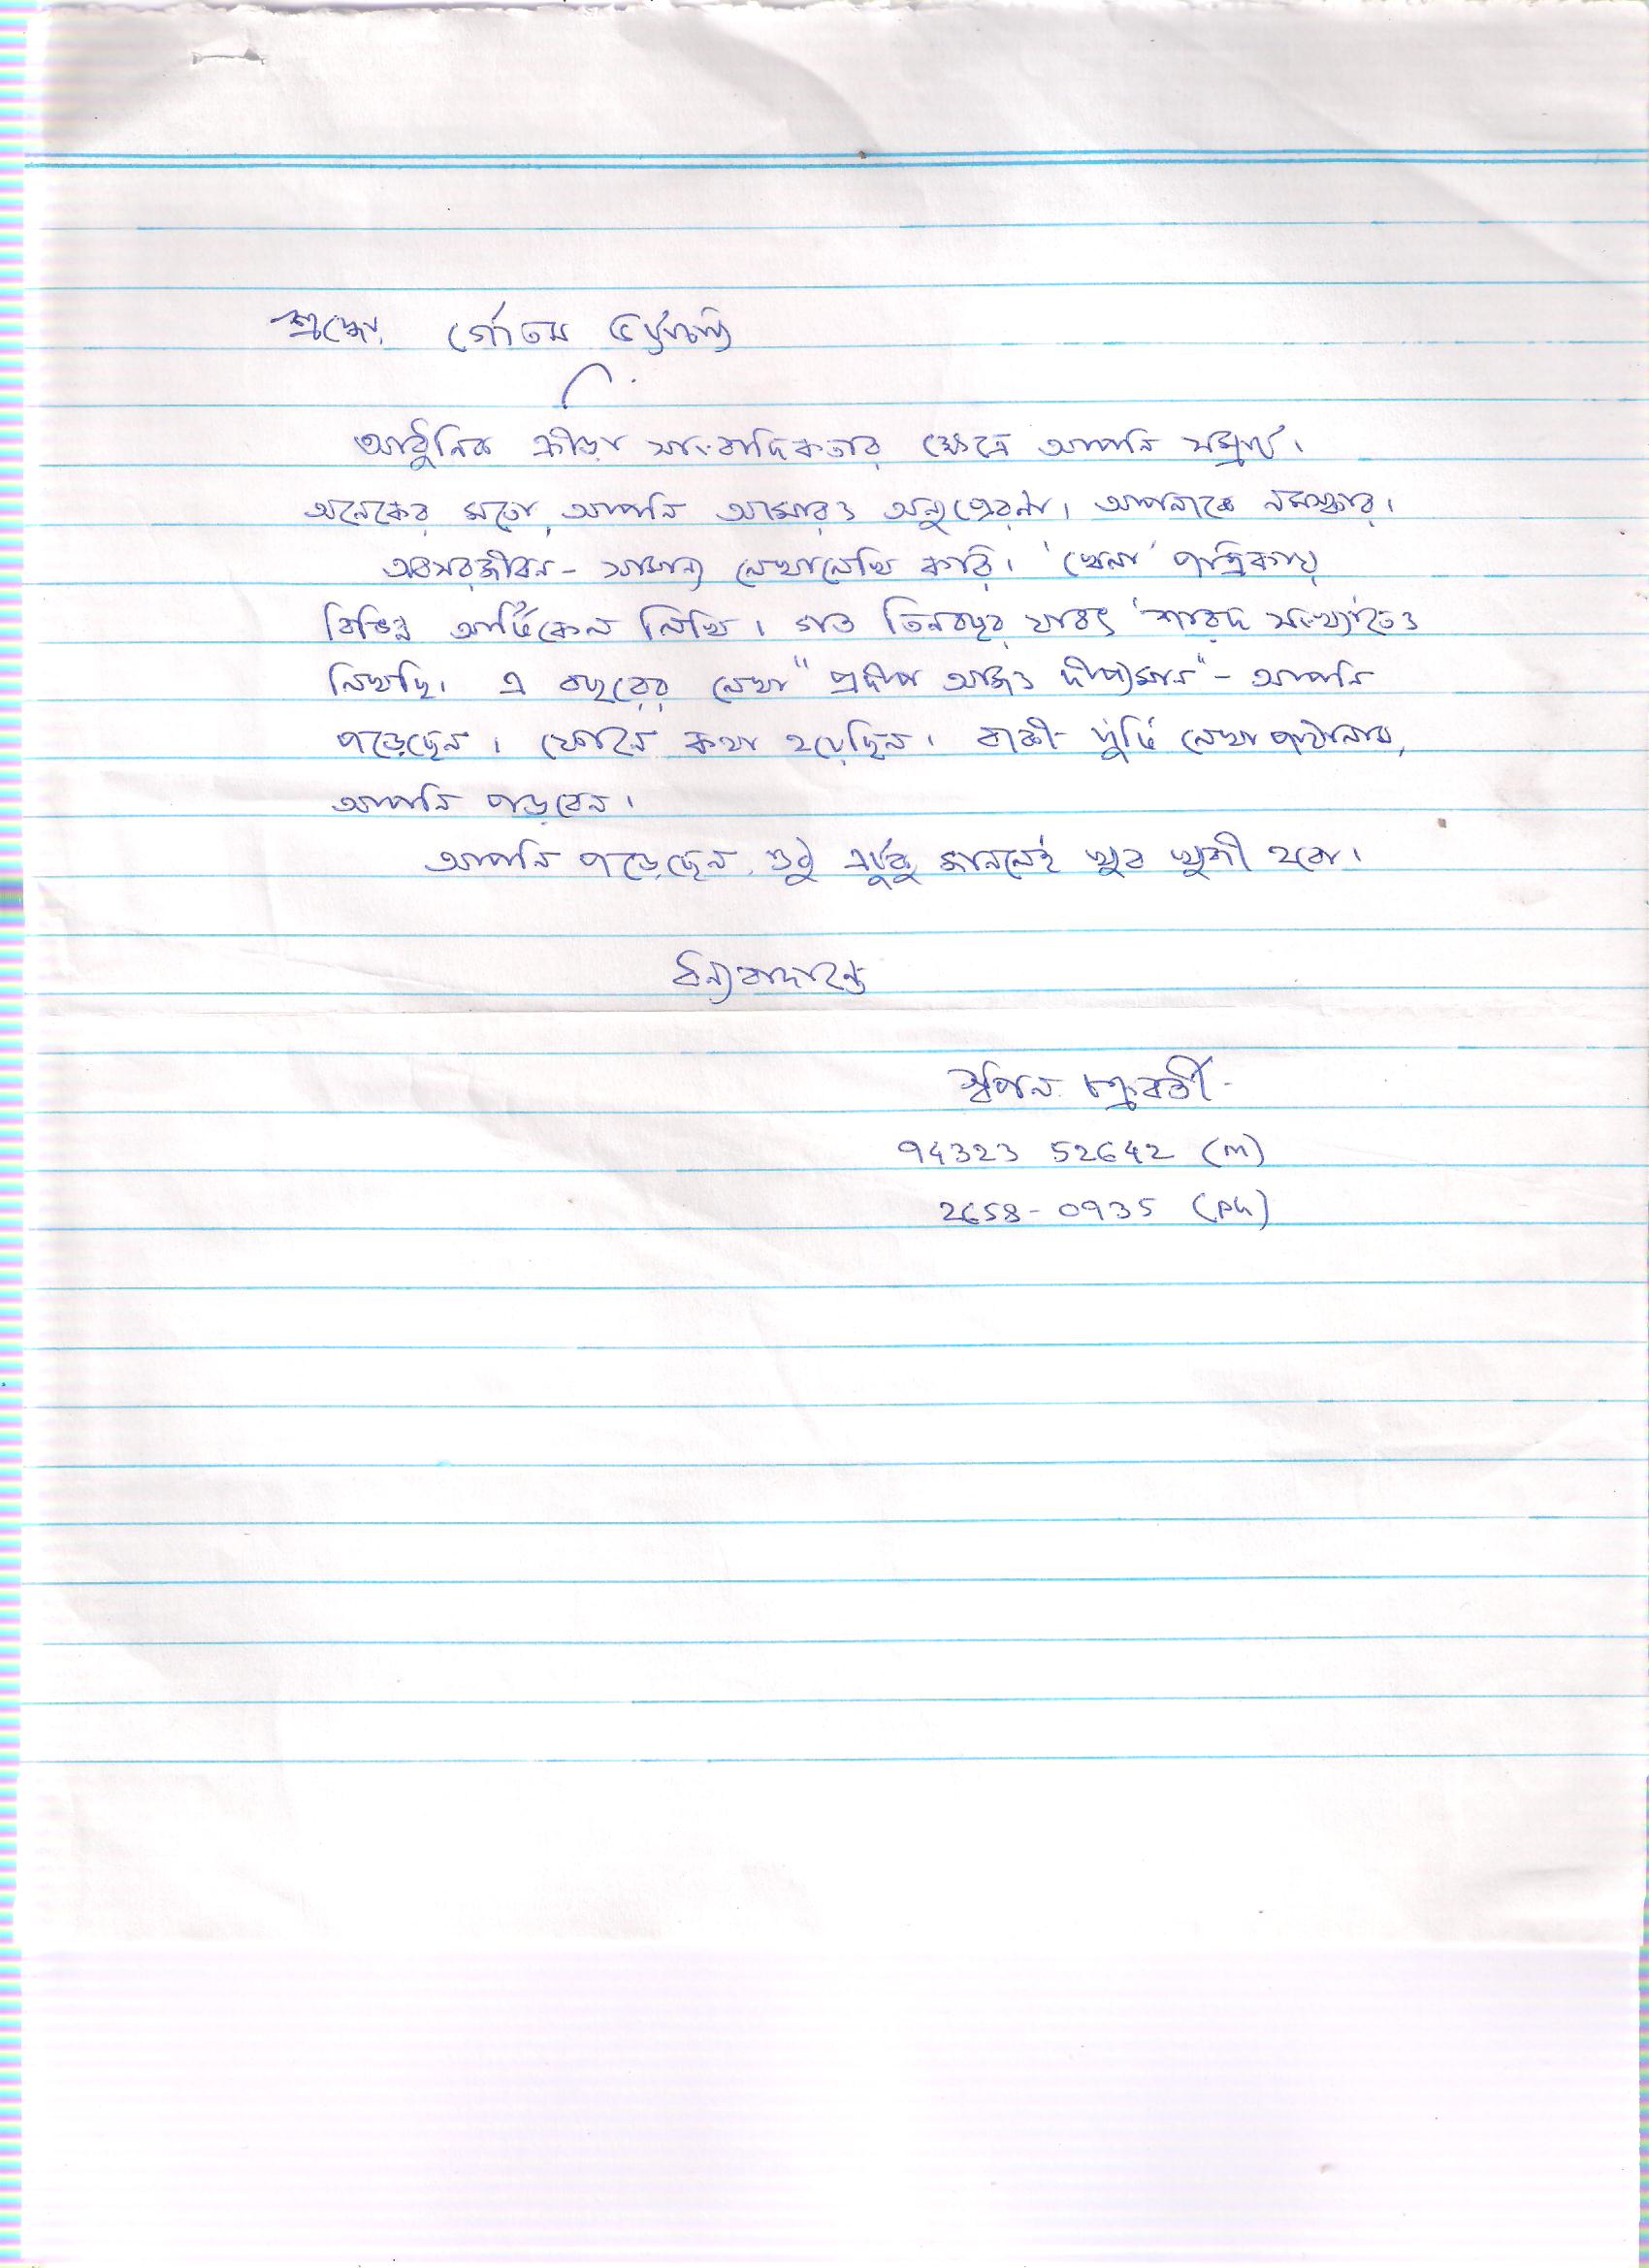 শ্রদ্ধেয় গৌতম ভট্টাচার্য
আধুনিক ক্রীড়া সাংবাদিকতার ক্ষেত্রে আপনি সম্রাট।
অনেকের মতো, আপনি আমারও অনুপ্রেরণা। আপনাকে নমস্কার।
অবসরজীবন - সামান্য লেখালেখি করি। 'খেলা' পত্রিকায়
বিভিন্ন আর্টিকেল লিখি। গত তিনবছর যাবৎ 'শারদ সংখ্যাতেও
লিখছি। এ বছরের লেখা "প্রদীপ আজও দীপ্যমান" - আপনি
পড়েছেন। ফোনে কথা হয়েছিল। বাকী দুটি লেখা পাঠালাম,
আপনি পড়বেন।
আপনি পড়েছেন, শুধু এটুকু জানলেই খুব খুশী হবো।
ধন্যবাদান্তে
স্বপন চক্রবর্তী
94323 52642 (M)
2658-0935 (Ph)